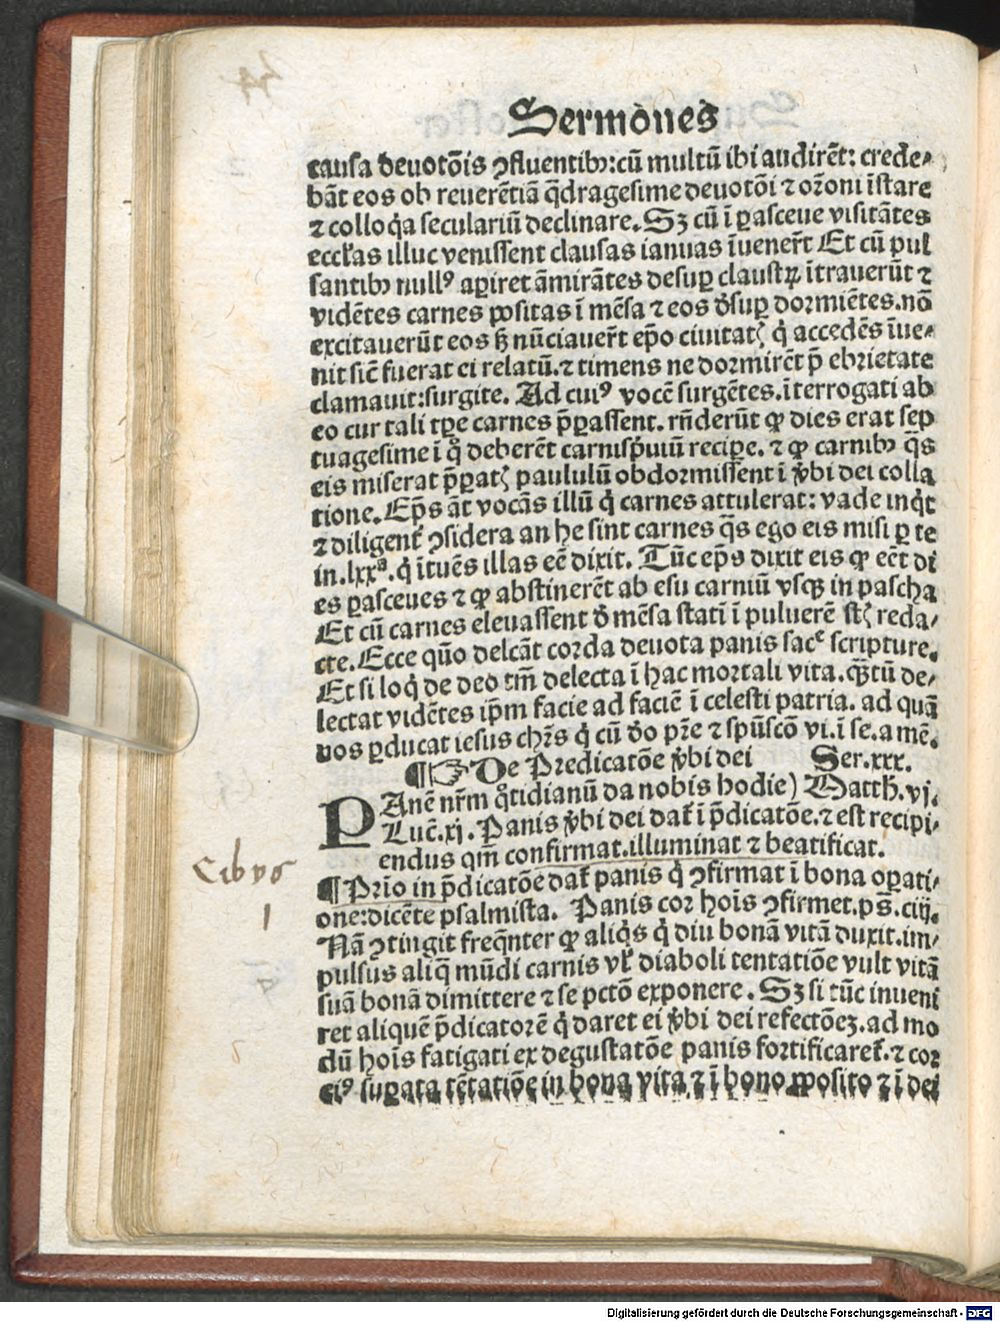 Sermones
causa deuotõis ꝯfluentibꝫ: cũ multũ ibi audirẽt: crede⸗
bãt eos ob reuerẽtiã q̃dragesime deuotõi ⁊ oroñi ĩstare
⁊ colloq̃a seculariũ declinare. Sꝫ cũ ĩ ꝑasceue visitãtes
eccl̃as illuc venissent clausas ianuas ĩueneȓt Et cũ pul
santibꝫ nullꝰ aꝑiret ãmirãtes desuꝑ claustꝝ ĩtrauerũt ⁊
vidẽtes carnes positas ĩ mẽsa ⁊ eos d̾suꝑ dormiẽtes. nõ
excitauerũt eos ß nũciaueȓt ep̃o ciuitatꝭ q̇ accedẽs ĩue⸗
nit sic̃ fuerat ei relatũ. ⁊ timens ne dormirẽt p̃ ebrietate
clamauit: surgite. Ad cuiꝰ vocẽ surgẽtes. ĩterrogati ab
eo cur tali tꝑe carnes p̃ꝑassent. rñderũt ꝙ dies erat sep
tuagesime ĩ qͦ deberẽt carnisp̃uiũ reciꝑe. ⁊ ꝙ carnibꝫ q̃s
eis miserat p̃ꝑatꝭ paululũ obdormissent ĩ v̾bi dei colla
tione. Ep̃s ãt vocãs illũ q̇ carnes attulerat: vade inq̇t
⁊ diligent̾ ꝯsidera an he sint carnes q̃s ego eis misi ꝑ te
in .lxxᵃ. q̇ ĩtuẽs illas eẽ dixit. Tũc ep̃s dixit eis ꝙ eẽt di
es ꝑasceues ⁊ ꝙ abstinerẽt ab esu carniũ vsqꝫ in pascha
Et cũ carnes eleuassent d̾ mẽsa stati ĩ puluerẽ stꝭ reda⸗
cte. Ecce quõ delcãt corda deuota panis sacᵉ scripture.
Et si loq̇ de deo tm̃ delecta ĩ hac mortali vita. qꝫtũ de⸗
lectat vidẽtes ip̃m facie ad faciẽ ĩ celesti patria. ad quã
vos ꝑducat iesus chr̃s q̇ cũ d̾o pr̃e ⁊ spũscõ vi. ĩ se. amẽ.
¶☞De Predicatõe v̾bi dei Ser. xxx.
PAnẽ nr̃m qͦtidianũ da nobis hodie) Matth. vj.
Luc̃. xj. Panis v̾bi dei dat̾ ĩ p̃dicatõe. ⁊ est recipi⸗
endus qm̃ confirmat. illuminat ⁊ beatificat.
¶ Prĩo in p̃dicatõe dat̾ panis q̇ ꝯfirmat ĩ bona oꝑati⸗
one: dicẽte psalmista. Panis cor hoĩs ꝯfirmet. ps̃. ciij.
Cibus
1
Nã ꝯtingit freq̃nter ꝙ aliq̇s q̇ diu bonã vitã duxit. im⸗
pulsus aliq̃ mũdi carnis vl̾ diaboli tentatiõe vult vitã
suã bonã dimittere ⁊ se pctõ exponere. Sꝫ si tũc inueni
ret aliquẽ p̃dicatorẽ q̇ daret ei v̾bi dei refectõeꝫ. ad mo
dũ hoĩs fatigati ex degustatõe panis fortificaret̾. ⁊ cor
eiꝰ suꝑata tẽtatiõe in bona vita ⁊ ĩ bono ꝓposito ⁊ ĩ dei
Digitalisierung gefördert durch die Deutsche Forschungsgemeinschaft - DFG